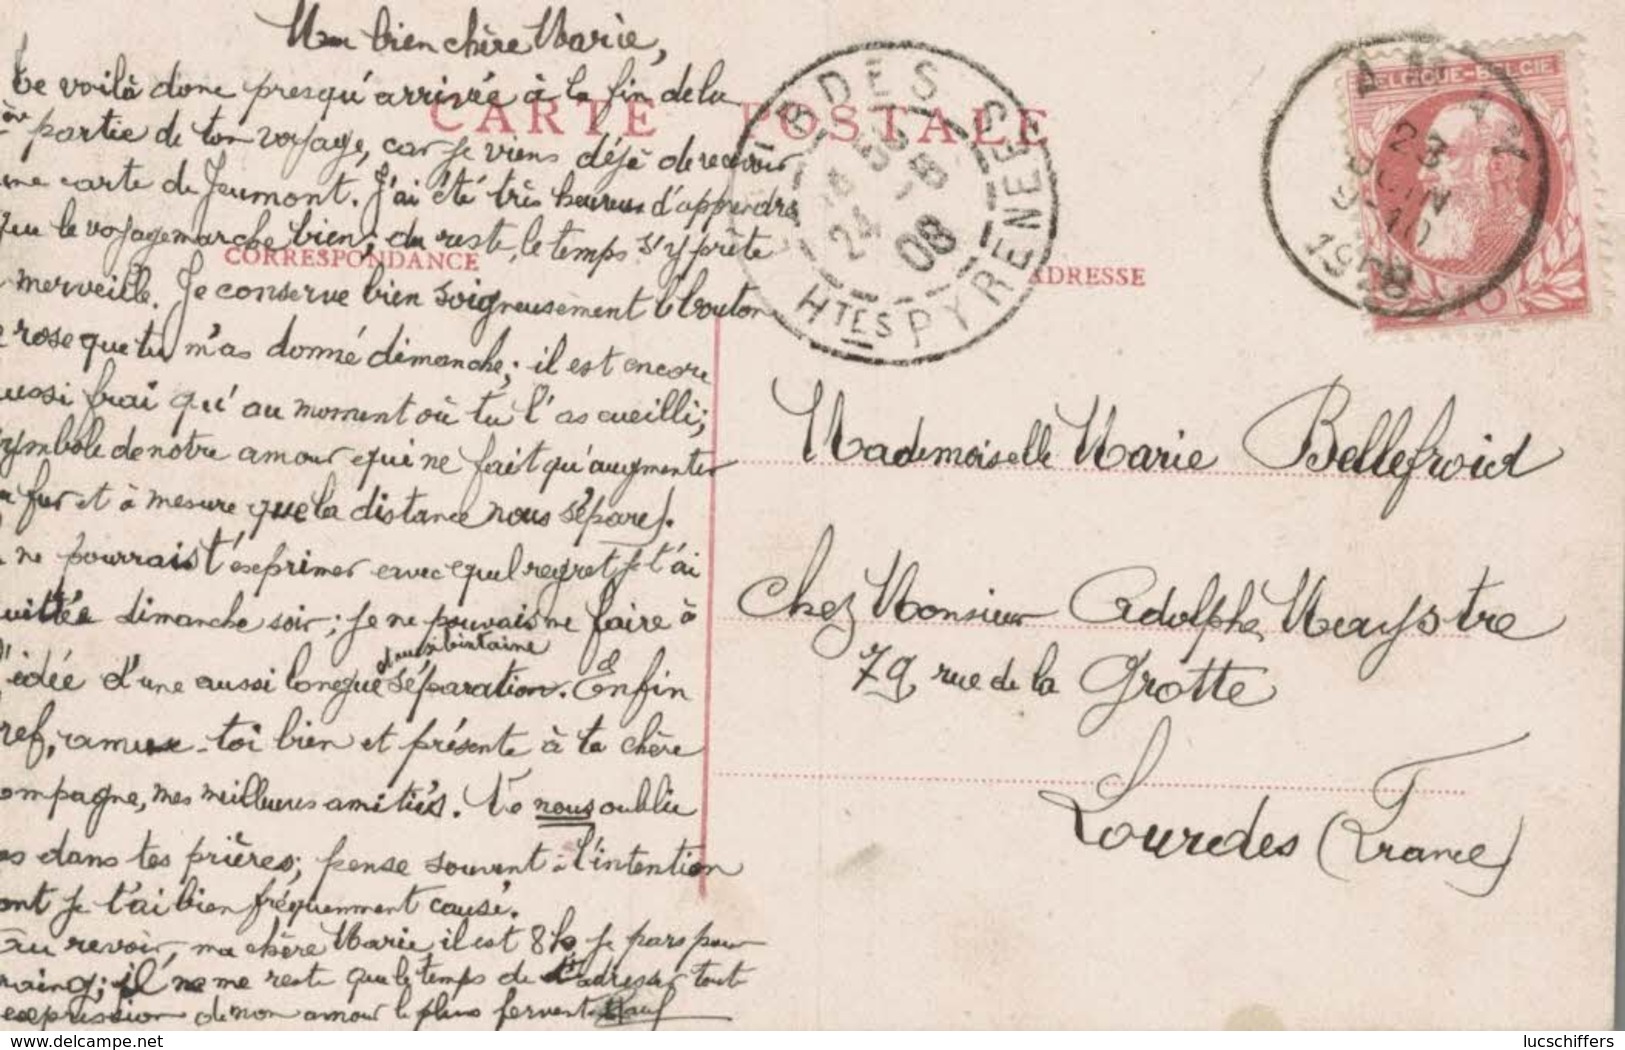 Ma bien chère Marie,
Te voilà donc presqu'arrivée à la fin de la
partie de ton voyage, car je viens déjà de recevoir
une carte de Jeumont. J'ai été très heureux d'apprendre
que le voyage marche bien; du reste, le temps s'y prête
merveille. Je conserve bien soigneusement le bouton
rose que tu m'as donné dimanche; il est encore
aussi frai qu'au moment où tu l'as cueilli;
symbole de notre amour qui ne fait qu'augmenter
fur et à mesure que la distance nous sépare.
ne pourrais t'exprimer avec quel regret je t'ai
quittée dimanche soir; je ne pouvais me faire à
l'idée d'une aussi longue séparation. Enfin
bref, amuse-toi bien et présente à ta chère
compagne, mes meilleures amitiés. Ne nous oublie
pas dans tes prières; pense souvent à l'intention
dont je t'ai bien fréquemment causé.
Au revoir, ma chère Marie, il est 8h je pars pour
il ne me reste que le temps de t'adresser toute
expression de mon amour le plus fervent
CARTE POSTALE
CORRESPONDANCE
ADRESSE
RDES
Htes PYRENEES
24 -6
08
AMAY
23
JUIN
10
1908
BELGIQUE-BELGIE
10
Mademoiselle Marie Bellefroid
Chez Monsieur Adolphe Maystre
79 rue de la Grotte
Lourdes (France)
www.delcampe.net
lucschiffers